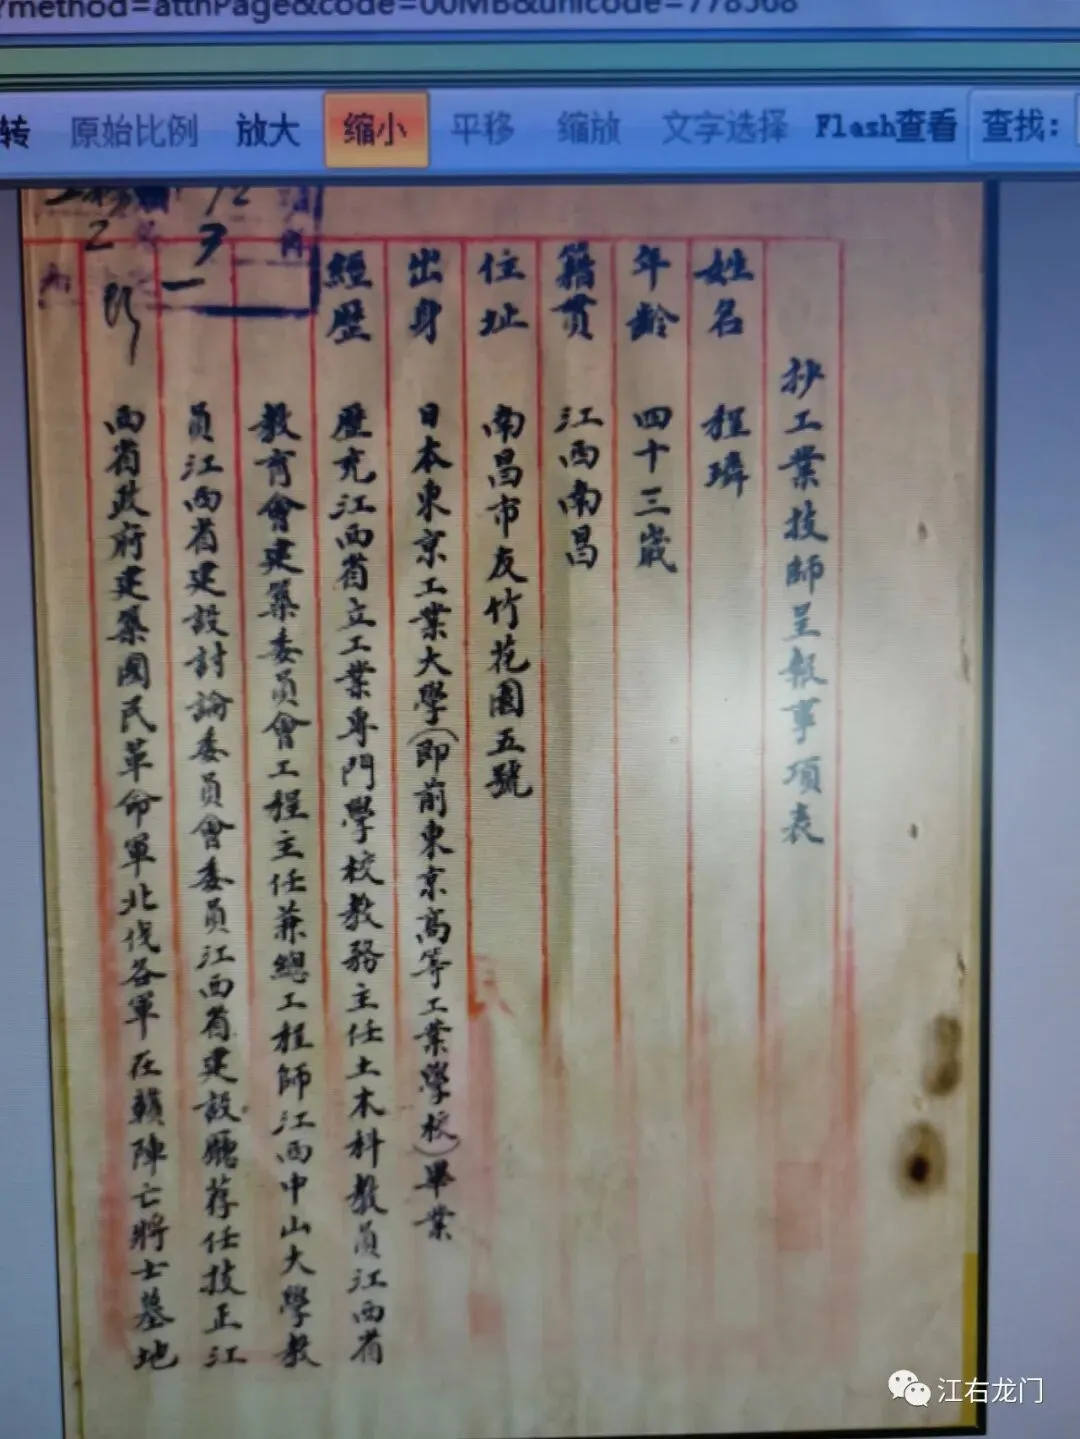 ?method=attnPage&code=00MB&unicode=778568
转 原始比例 放大 缩小 平移 缩放 文字选择 Flash查看 查找:
抄工業技師呈報事項表
姓名 程璘
年齡 四十三歲
籍貫 江西南昌
住址 南昌市友竹花園五號
出身 日本東京工業大學(即前東京高等工業學校)畢業
經歷 歷充江西省立工業專門學校教務主任土木科教員江西省
教育會建築委員會工程主任兼總工程師江西中山大學教
員江西省建設討論委員會委員江西省建設廳荐任技正江
西省政府建築國民革命軍北伐各軍在贛陣亡將士墓地
江右龙门